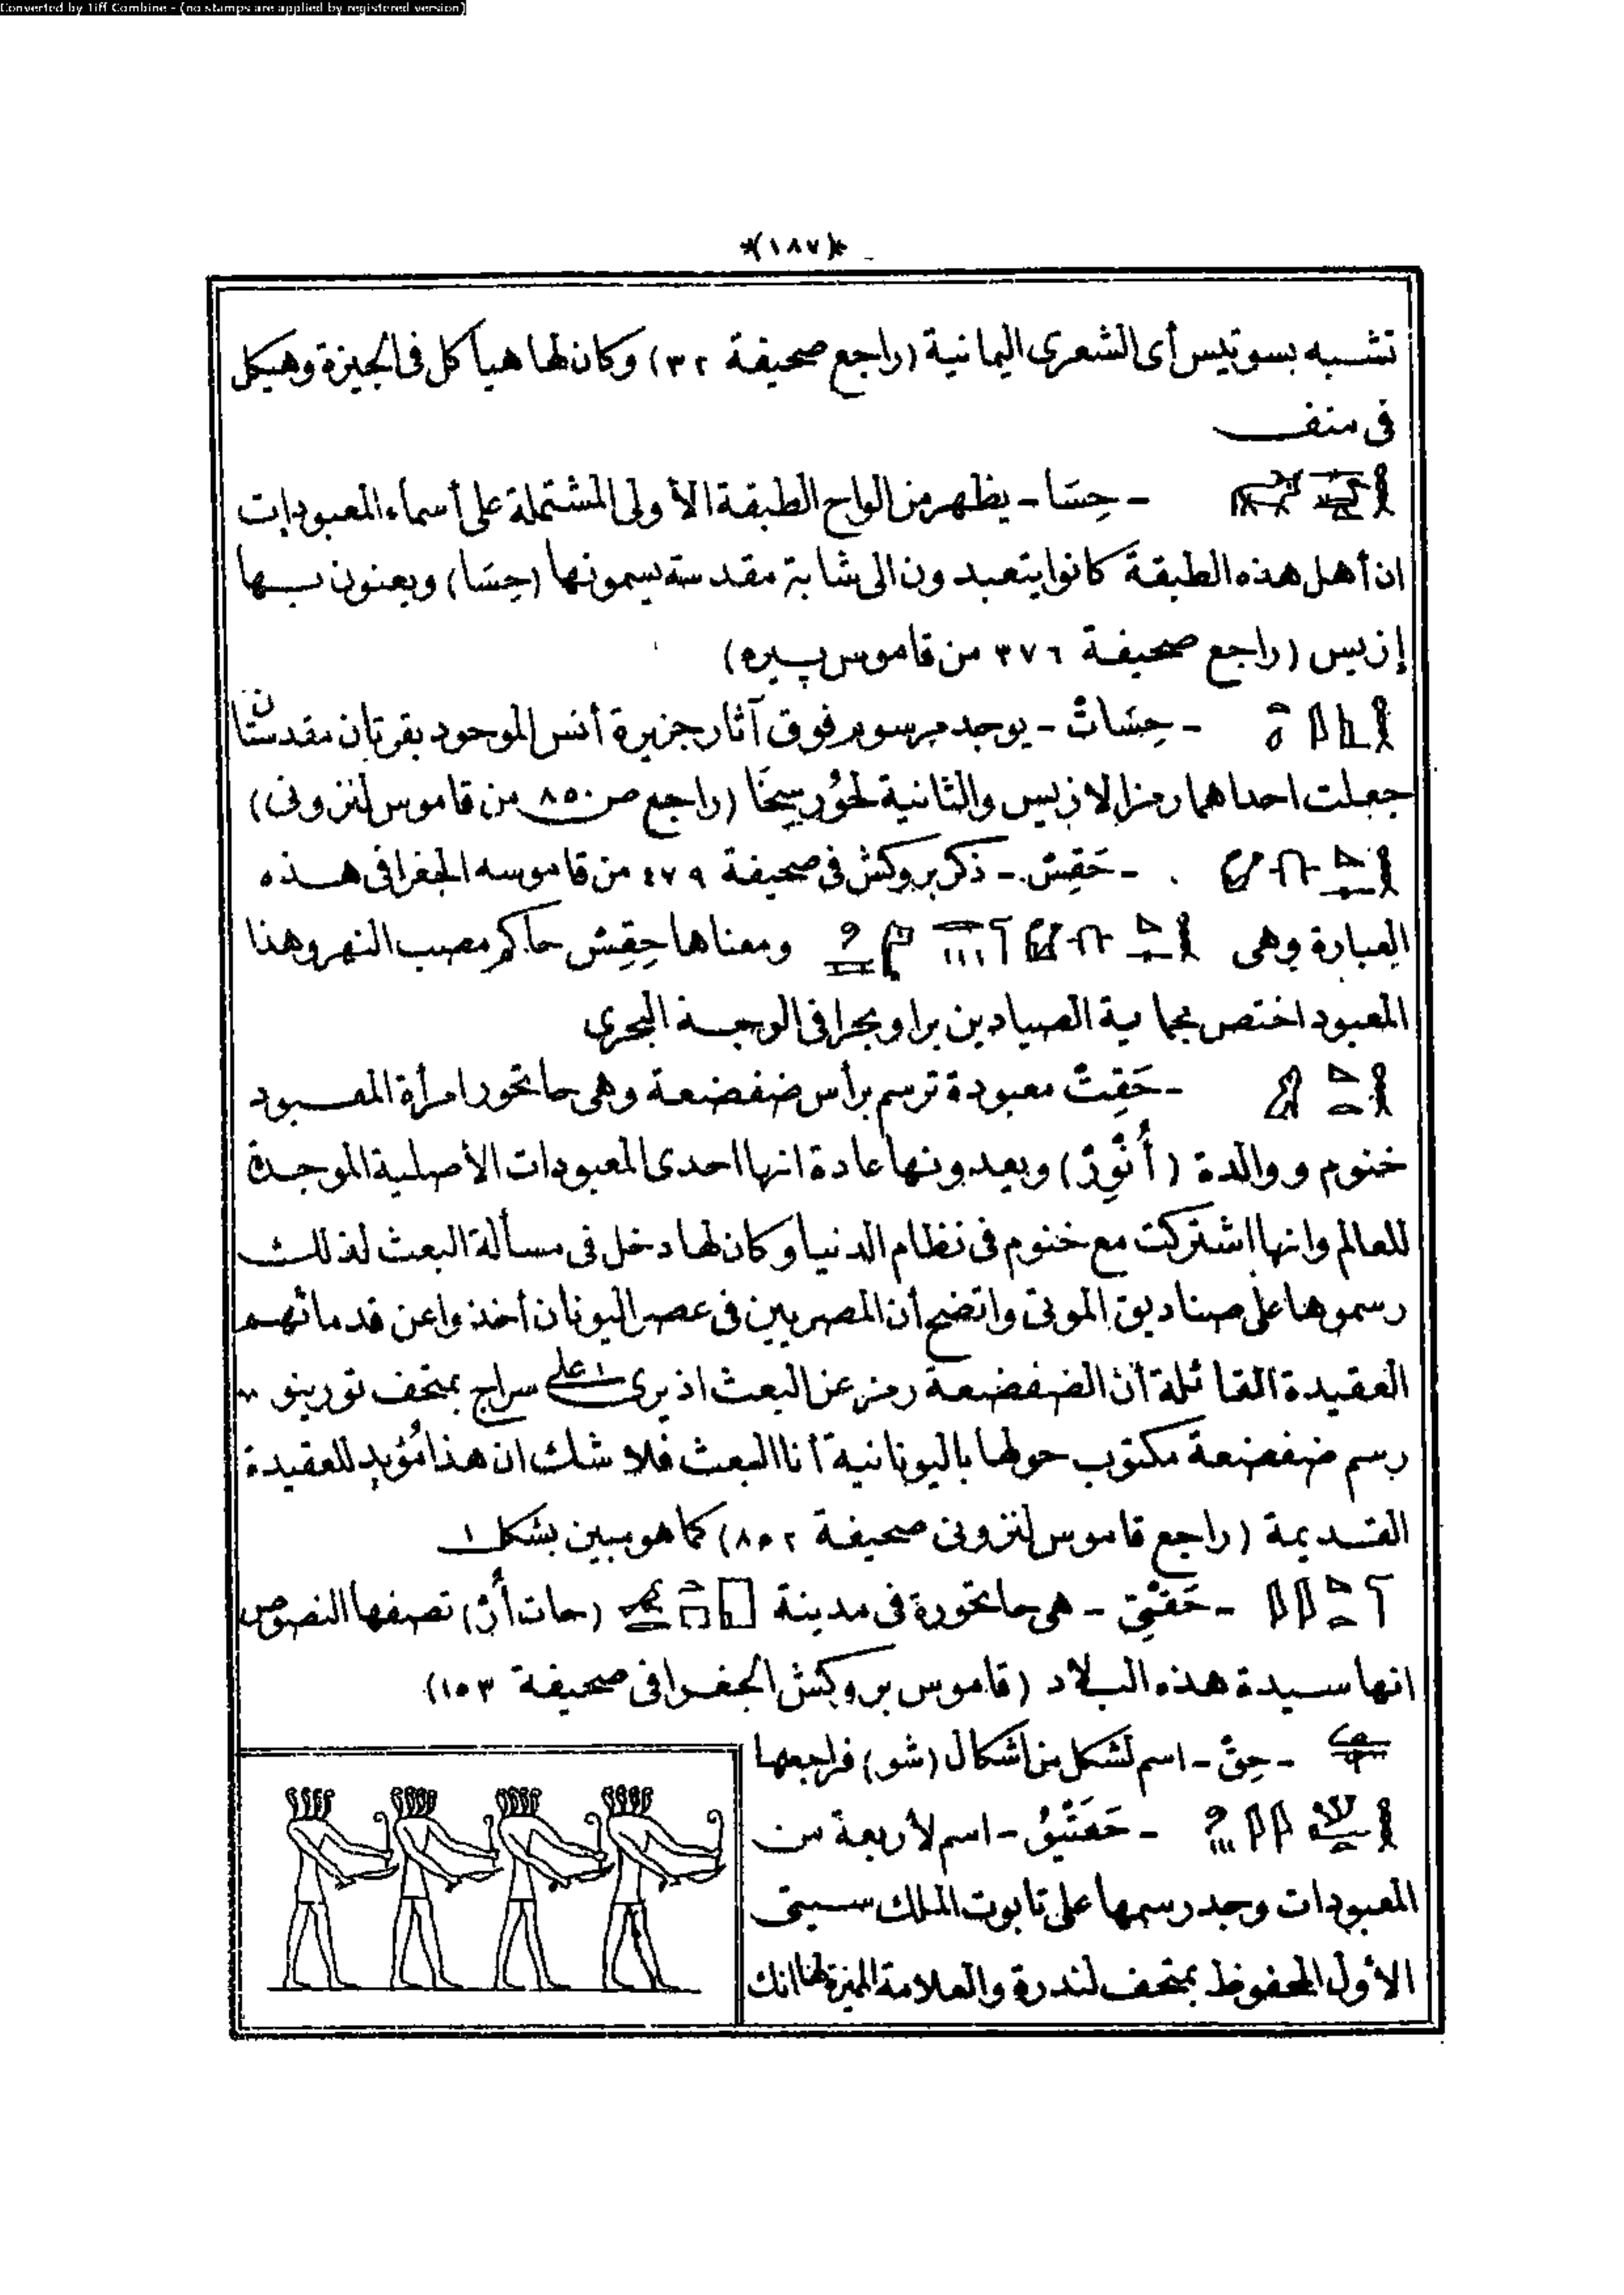 Converted by Tiff Combine - (no stamps are applied by registered version)
*(١٨٧)*
تشبه بسوتيس أى الشعرى اليمانية (راجع صحيفة ٣٢) وكان لها هياكل فى الجيزة وهيكل
فى منف
- حِسَا - يظهر من الواح الطبقة الأولى المشتملة على أسماء المعبودات
ان أهل هذه الطبقة كانوا يتعبدون الى شابة مقدسة يسمونها (حِسَا) ويعنون بها
إزيس (راجع صحيفة ٣٧٦ من قاموس پيره)
- حِسَاتْ - يوجد مرسوم فوق آثار جزيرة أنس الموجود بقرتان مقدستان
جعلت احداهما رمزا لازيس والثانية لحُورسِحَا (راجع ص ٨٥٠ من قاموس لنزونى)
- حَقِسْ - ذكر بروكش فى صحيفة ٤٧٩ من قاموسه الجغرافى هذه
العبارة وهى ومعناها حِقِسْ حاكم مصب النهر وهذا
المعبود اختص بحماية الصيادين برا وبحرا فى الوجه البحرى
- حَقِتْ معبودة ترسم برأس ضفضعة وهى حاتحور امرأة المعبود
خنوم ووالدة (أُنُوِرْ) ويعدونها عادة انها احدى المعبودات الأصلية الموجدة
للعالم وانها اشتركت مع خنوم فى نظام الدنيا وكان لها دخل فى مسألة البعث لذلك
رسموها على صناديق الموتى واتضح أن المصريين فى عصر اليونان أخذوا عن قدمائهم
العقيدة القائلة أن الضفضعة رمز عن البعث اذ يرى على سراج بمتحف تورينو
رسم ضفضعة مكتوب حولها باليونانية أنا البعث فلا شك ان هذا مُؤيد للعقيدة
القديمة (راجع قاموس لنزونى صحيفة ٨٥٢) كما هو مبين بشكل ١
- حَقتِى - هى حاتحورة فى مدينة (حات أُرْ) تصفها النصوص
انها سيدة هذه البلاد (قاموس بروكش الجغرافى صحيفة ١٥٣)
- حِقْ - اسم لشكل من أشكال (شو) فراجعها
- حَقَتْيُو - اسم لأربعة من
المعبودات وجد رسمها على تابوت الملك سيتى
الأول المحفوظ بمتحف لندرة والعلامة المميزة لها انك